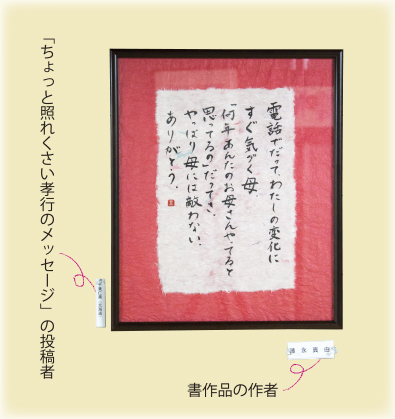 「ちょっと照れくさい孝行のメッセージ」の投稿者
電話でだって、わたしの変化に
すぐ気づく母。
「何年あんたのお母さんやってると
思ってるの」だってさ。
やっぱり母には敵わない。
ありがとう。
書作品の作者